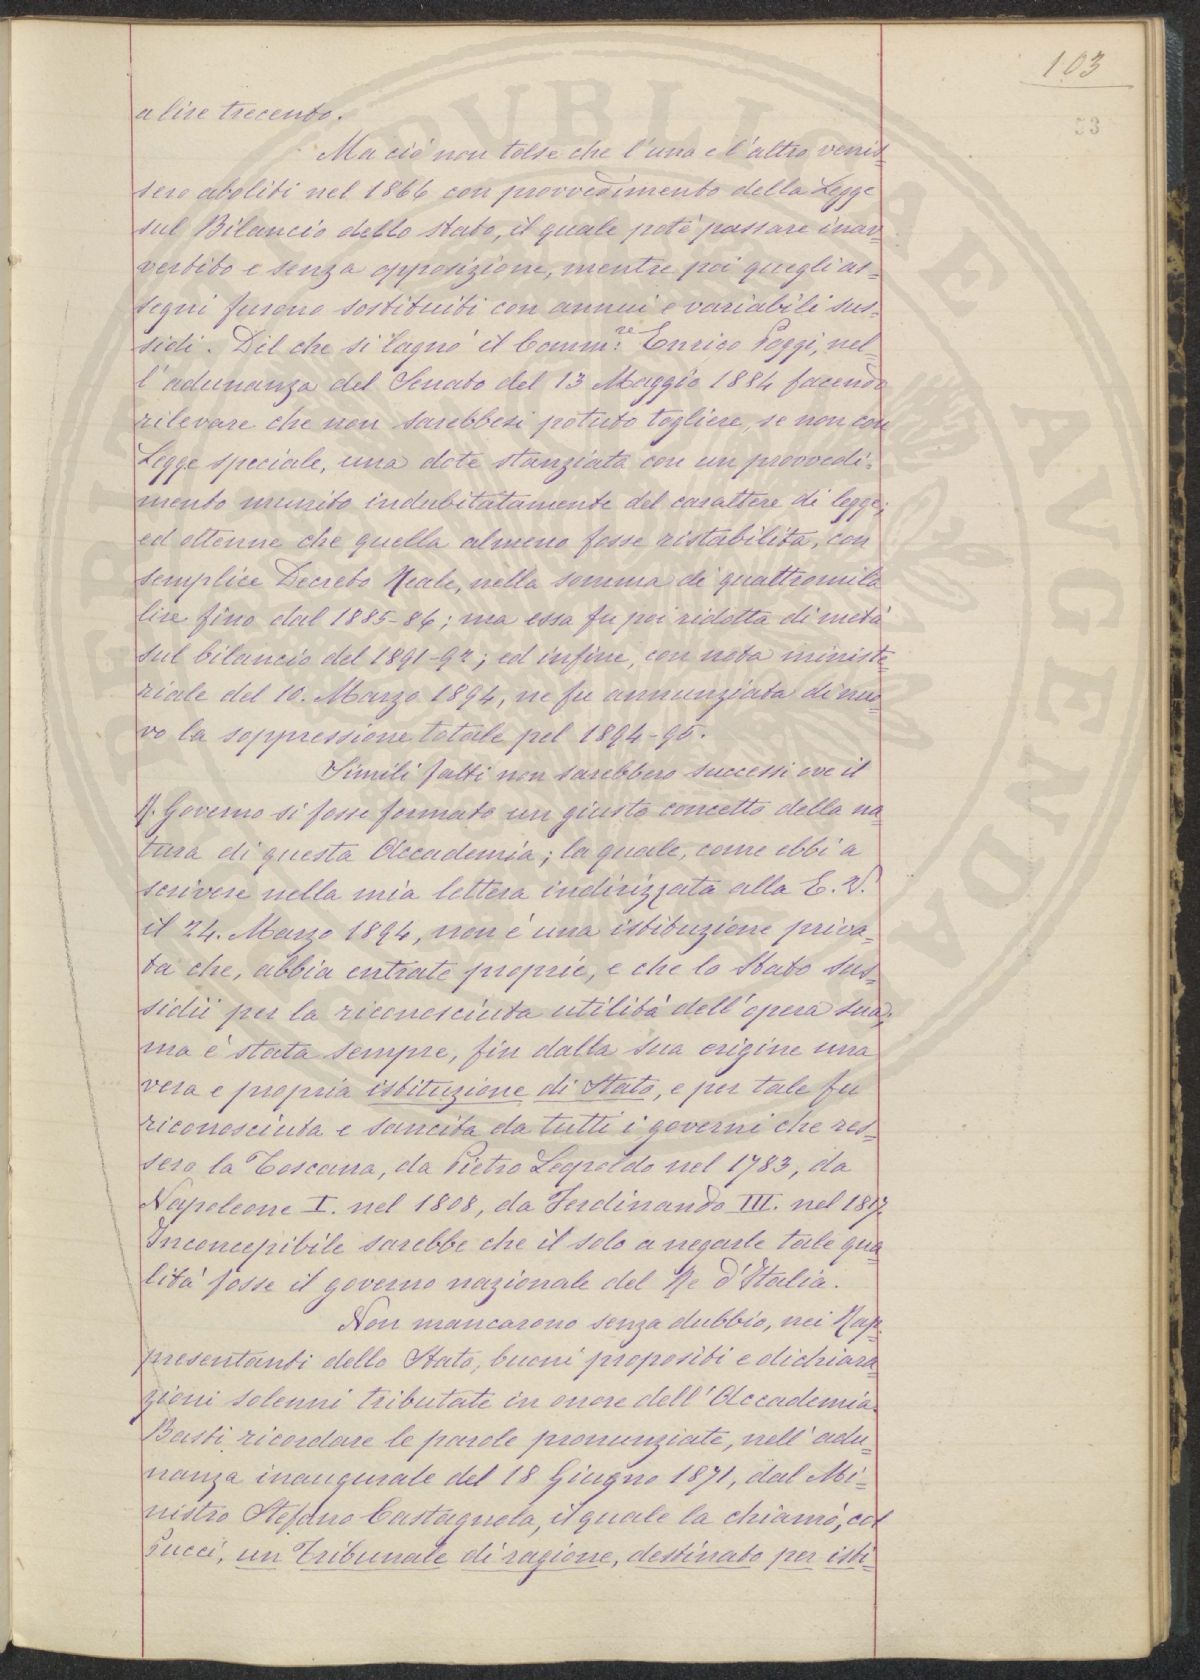 103
53
a lire trecento.
Ma ciò non tolse che l'una e l'altro venis=
sero aboliti nel 1866 con provvedimento della Legge
sul Bilancio dello Stato, il quale potè passare inav=
vertito e senza opposizione, mentre poi quegli as=
segni furono sostituiti con annui e variabili sus=
sidi. Dil che si lagnò il Comm.re Enrico Poggi, nel=
l'adunanza del Senato del 13 Maggio 1884 facendo
rilevare che non sarebbesi potuto togliere, se non con
Legge speciale, una dote stanziata con un provvedi=
mento munito indubitatamente del carattere di legge;
ed ottenne che quella almeno fosse ristabilita, con
semplice Decreto Reale, nella somma di quattromila
lire fino dal 1885-86; ma essa fu poi ridotta di metà
sul bilancio del 1891-92; ed infine, con nota ministe=
riale del 10. Marzo 1894, ne fu annunziata di nuo=
vo la soppressione totale pel 1894-95.
Simili fatti non sarebbero successi ove il
R. Governo si fosse formato un giusto concetto della na=
tura di questa Accademia; la quale, come ebbi a
scrivere nella mia lettera indirizzata alla E. V.
il 24. Marzo 1894, non è una istituzione priva=
ta che, abbia entrate proprie, e che lo Stato sus=
sidii per la riconosciuta utilità dell'opera sua;
ma è stata sempre, fin dalla sua origine una
vera e propria istituzione di Stato, e per tale fu
riconosciuta e sancita da tutti i governi che res=
sero la Toscana, da Pietro Leopoldo nel 1783, da
Napoleone I. nel 1808, da Ferdinando III. nel 1817.
Inconcepibile sarebbe che il solo a negarle tale qua=
lità fosse il governo nazionale del Re d'Italia.
Non mancarono senza dubbio, nei Rap=
presentanti dello Stato, buoni propositi e dichiara=
zioni solenni tributate in onore dell'Accademia.
Basti ricordare le parole pronunziate, nell'adu=
nanza inaugurale del 18 Giugno 1871, dal Mi=
nistro Stefano Castagnola, il quale la chiamò, col
Pucci, un Tribunale di ragione, destinato per isti=
PERIT PVBLICAE AVGENDA